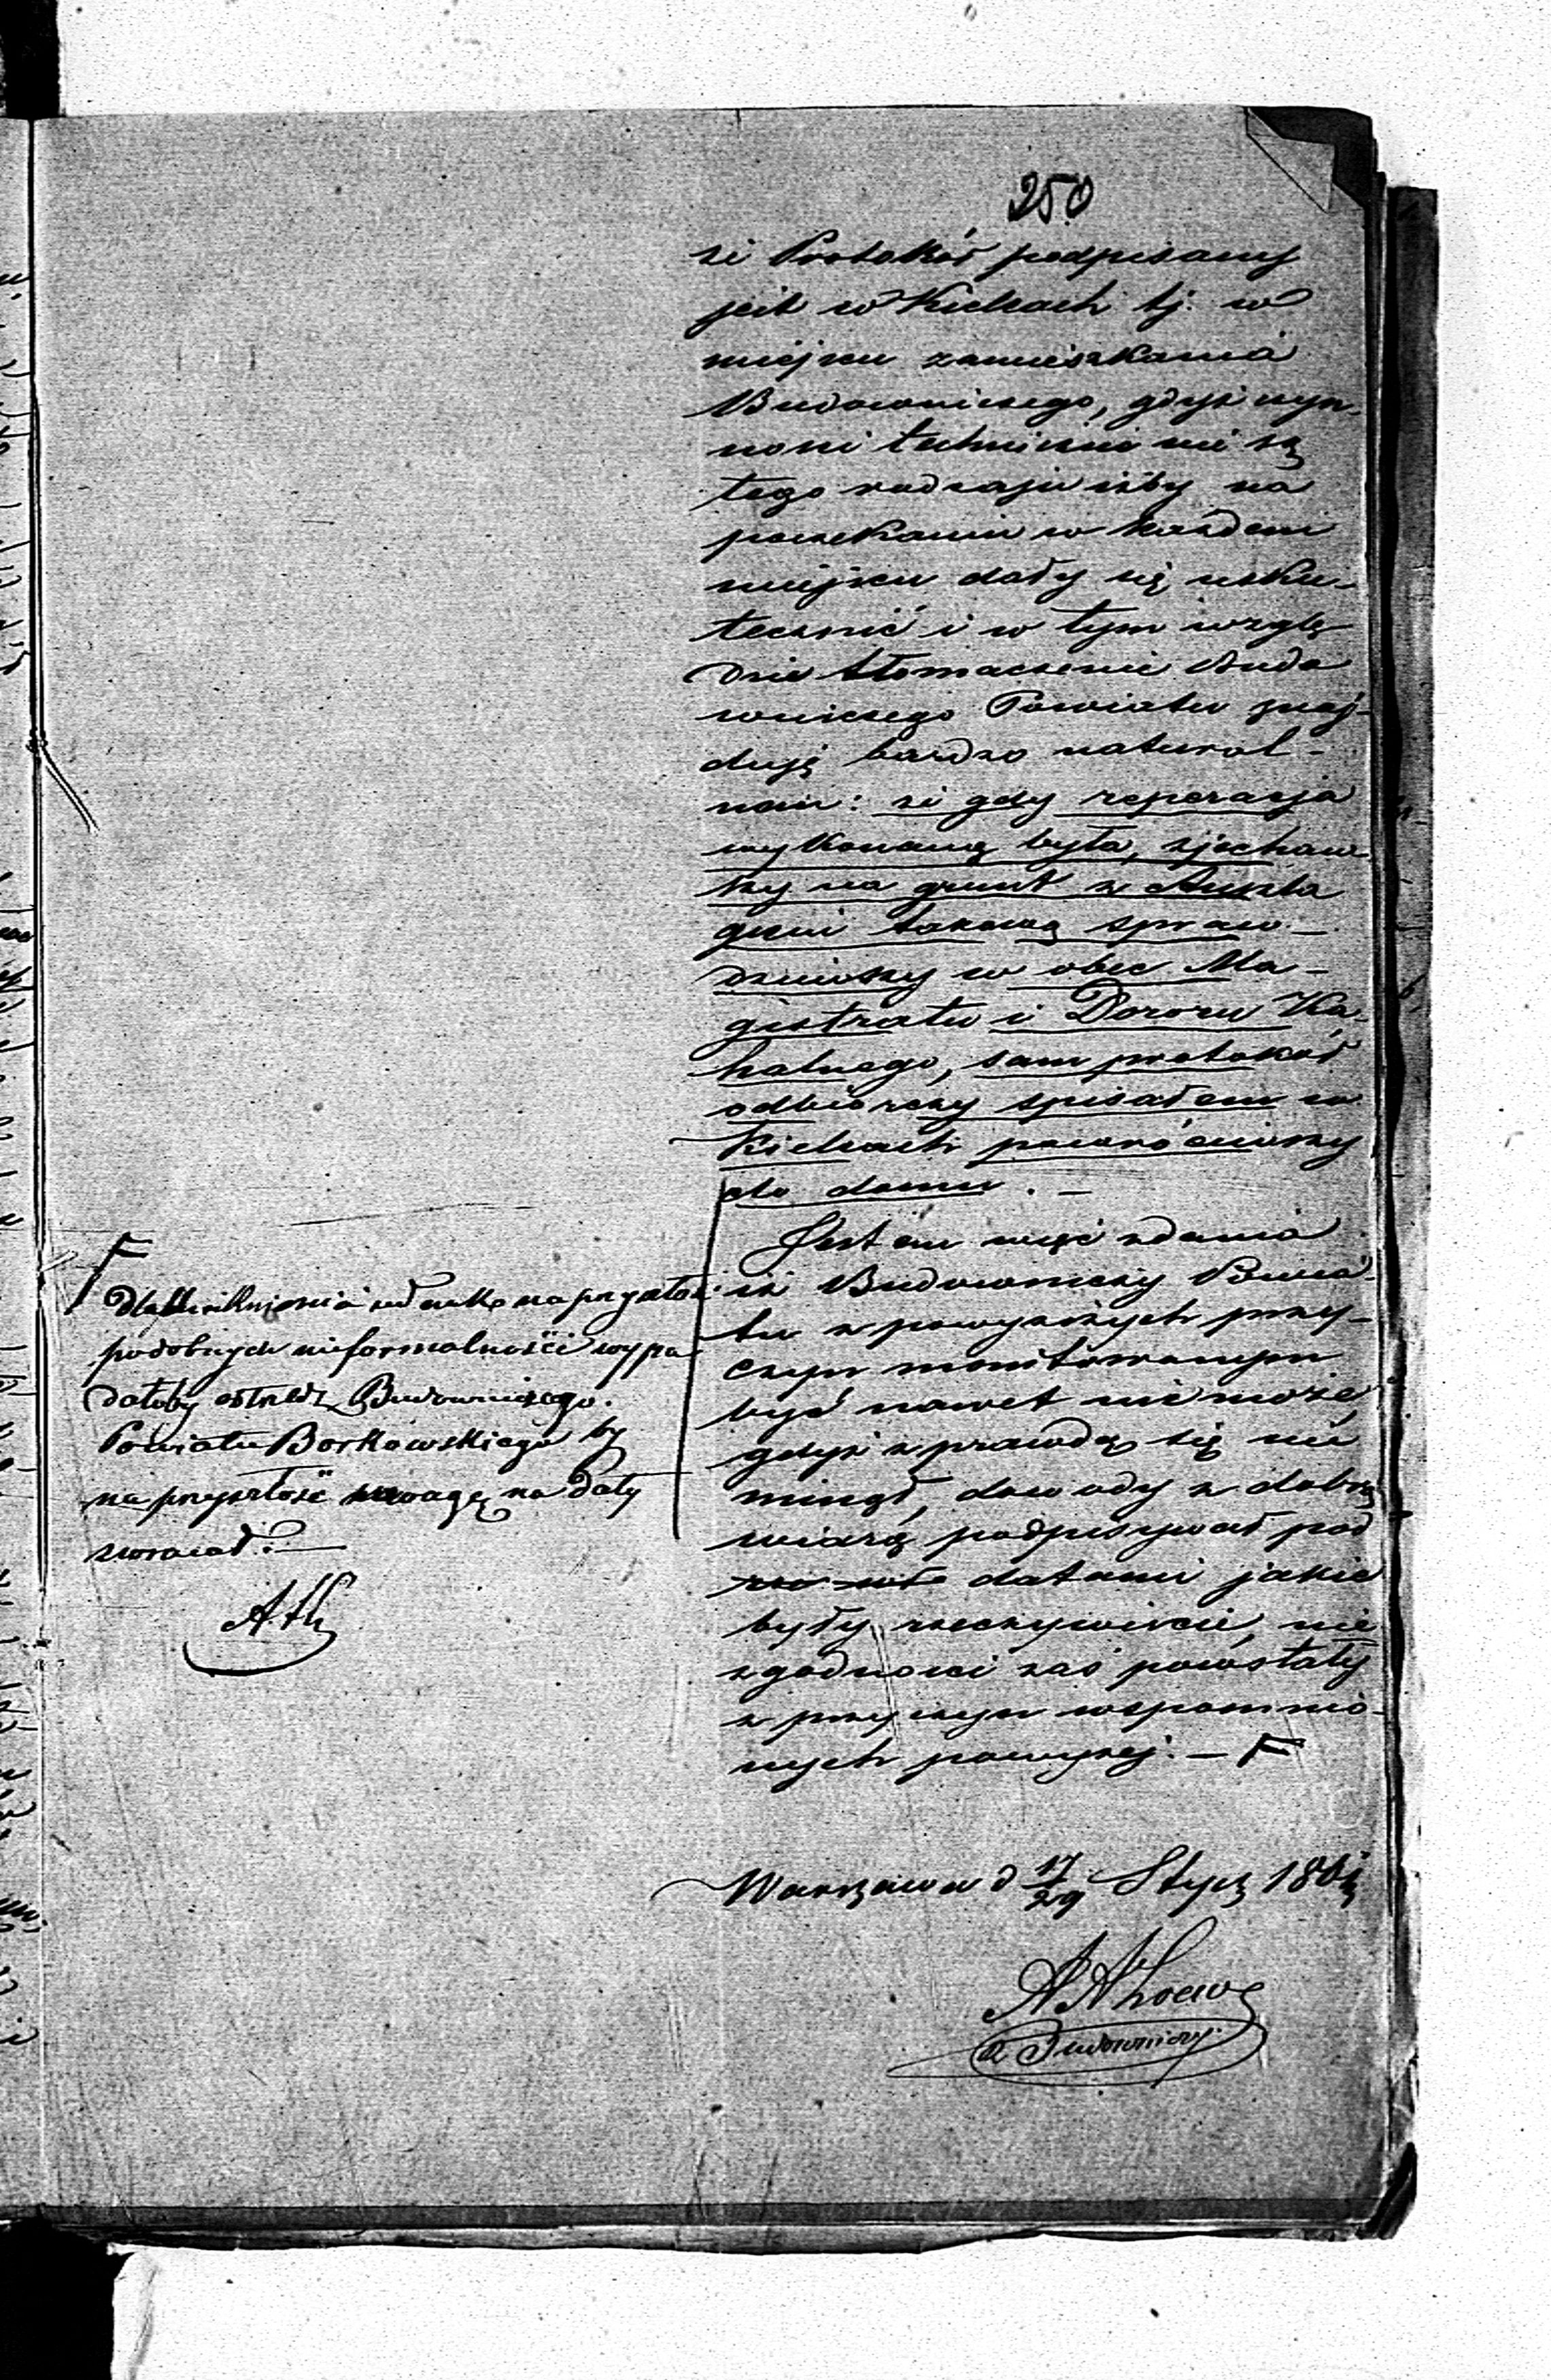 250
że Protokół podpisany
jest w Kielcach tj. w
miejscu zamieszkania
Budowniczego, gdyż czyn-
ności techniczne nie są
tego rodzaju iżby na
poczekaniu w każdem
miejscu dały się usku-
tecznić i w tym wzglę-
dzie tłomaczenie Budo
wniczego Powiatu znaj-
duję bardzo natural-
nem: że gdy reperacja
wykonaną była, zjechaw-
szy na grunt z
takową spraw-
dziwszy w obec Ma-
gistratu i Dozoru Ka-
halnego, sam protokół
odbiorczy spisałem w
Kielcach powróciwszy
do domu. —
Jestem więc zdania
iż Budowniczy Powia-
tu z powyższych przy-
czyn monitowanym
być nawet nie może,
gdyż z prawdą się nie
minął, dowody z dobrą
wiarą podpisywał pod
datami jakie
były rzeczywiście, nie
zgodności zaś powstały
z przyczyn wspomnio-
nych powyżej. — F
F
Dla uniknienia jednak na przyszłość
podobnych nieformalności wypa
dałoby ostrzedz Budowniczego
Powiatu Borkowskiego by
na przyszłość uwagę na daty
zwracał. —
Warszawa d 17/29 Stycz
Budowniczy